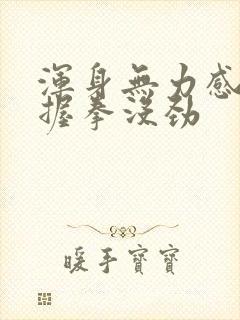 渾身無力感
握拳沒勁
暖手寶寶